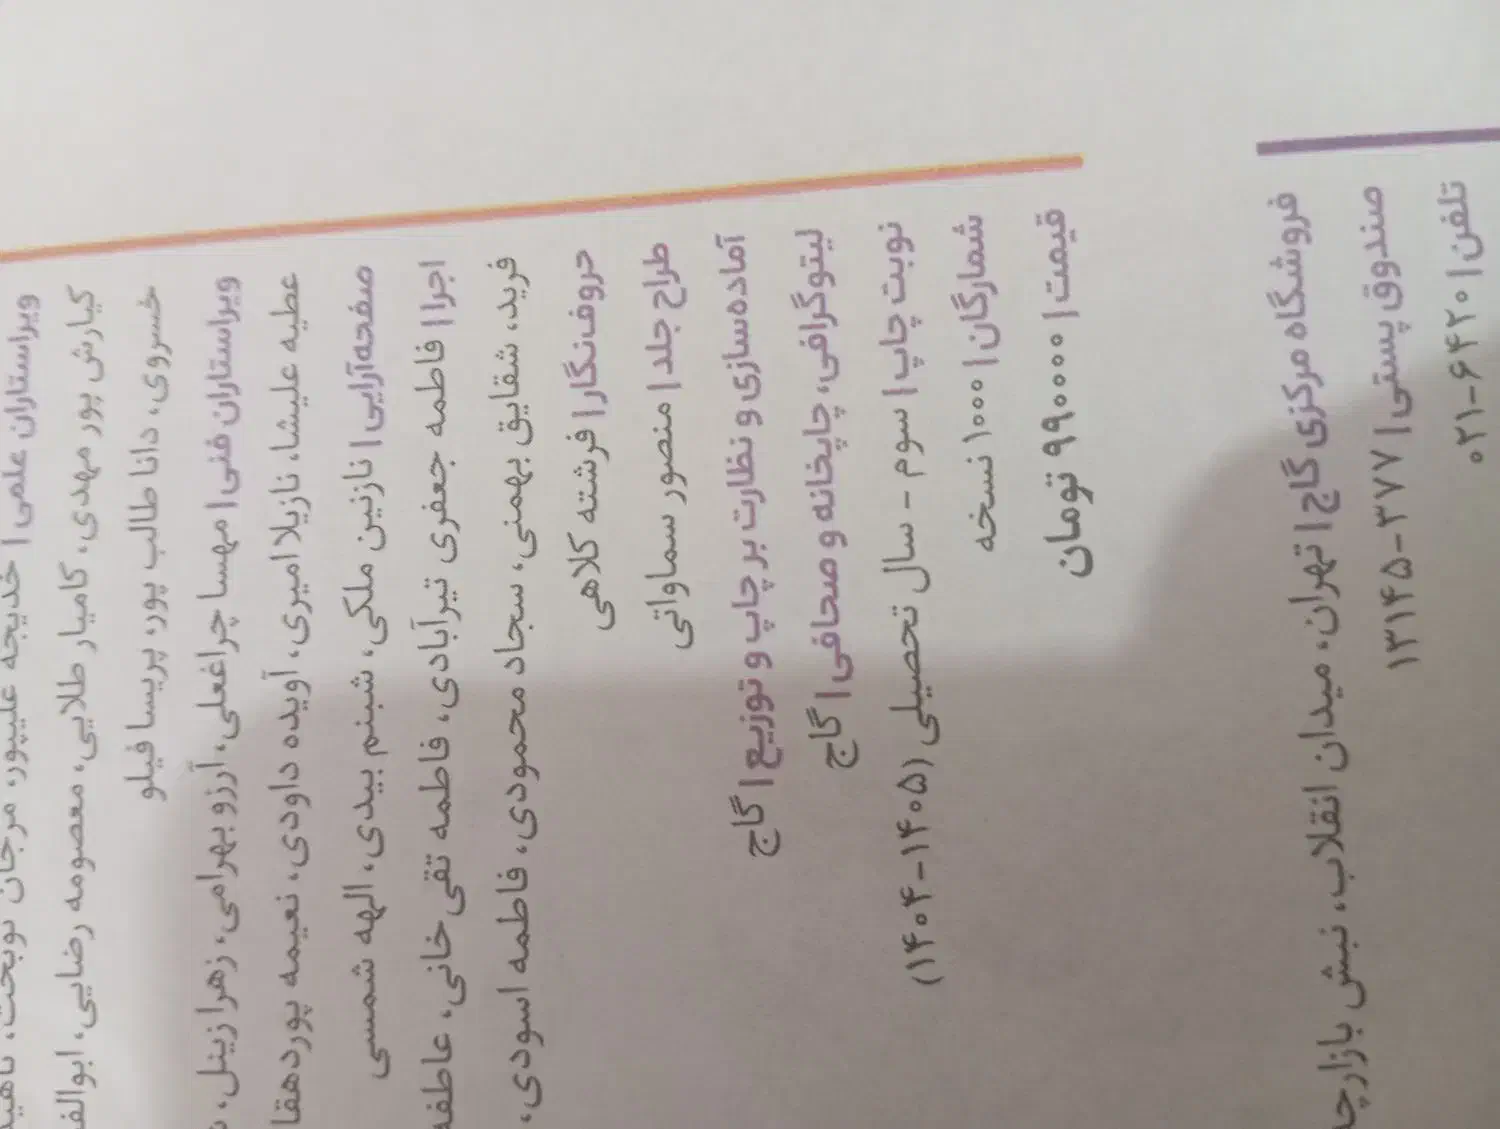 ویراستاران علمی | خدیجه علیپور، مرجان نوبخت، ناهید
کیارش پور مهدی، کامیار طلایی، معصومه رضایی، ابوالف
خسروی، دانا طالب پور، پریسا فیلو
ویراستاران فنی | مهسا چراغعلی، آرزو بهرامی، زهرا زینل،
عطیه علیشا، نازیلا امیری، آویده داودی، نعیمه پوردهقا
صفحه‌آرایی | نازنین ملکی، شبنم بیدی، الهه شمسی
اجرا | فاطمه جعفری تیرآبادی، فاطمه تقی خانی، عاطفه
فرید، شقایق بهمنی، سجاد محمودی، فاطمه اسودی،
حروف‌نگار | فرشته کلاهی
طراح جلد | منصور سماواتی
آماده‌سازی و نظارت بر چاپ و توزیع | گاج
لیتوگرافی، چاپخانه و صحافی | گاج
نوبت چاپ | سوم - سال تحصیلی (۱۴۰۵-۱۴۰۴)
شمارگان | ۱۰۰۰ نسخه
قیمت | ۹۹۰۰۰۰ تومان
فروشگاه مرکزی گاج | تهران، میدان انقلاب، نبش بازارچ
صندوق پستی | ۳۷۷-۱۳۱۴۵
تلفن | ۶۴۲۰-۰۲۱